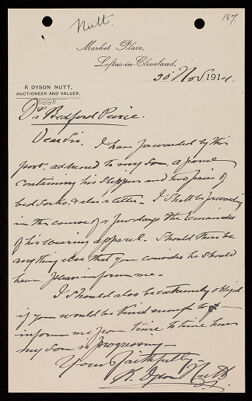 Nutt.
157.
Market Place,
Loftus-in-Cleveland,
30 Nov 1914.
R DYSON NUTT,
AUCTIONEER AND VALUER.
Dr Bedford Pierce.
Dear Sir. I have forwarded by this
post, addressed to my Son a parcel
containing his slippers and two pair of
bed socks, & also a letter. I shall be forwarding
in the course of a few days the remainder
of his wearing apparel. Should there be
anything else that you consider he should
have, please inform me.
I should also be extremely obliged
if you would be kind enough to
inform me from time to time how
my Son is progressing.
Yours Faithfully.
R. Dyson Nutt